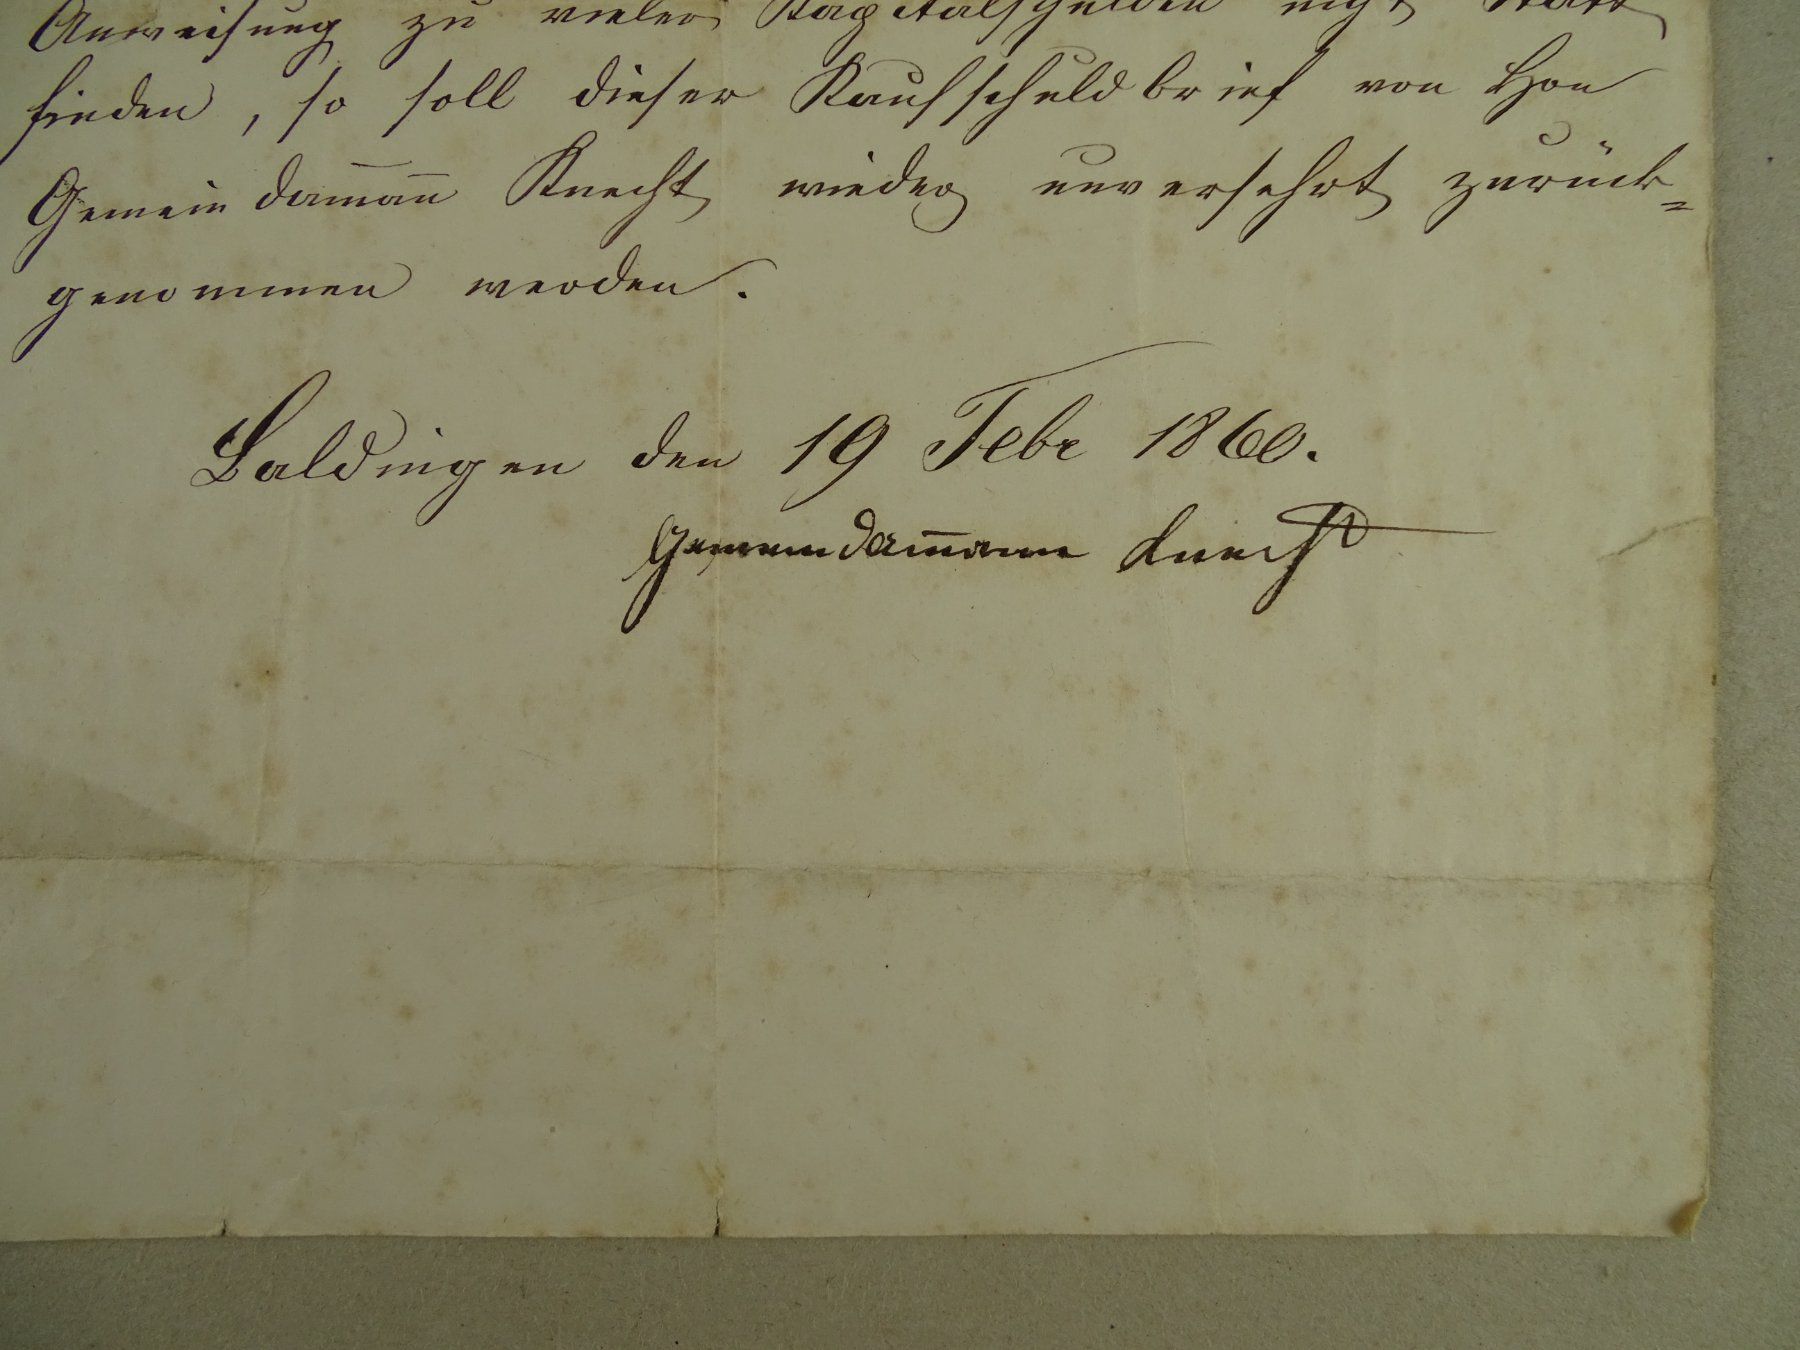 Anweisung zu vieler Kapitalschulden nicht statt
finden, so soll dieser Kaufschuldbrief von Hrn
Gemeindam̅an̅ Knecht wieder unversehrt zurück=
genommen werden.
Baldingen den 19 Febr 1860.
Gemeindam̅ann Knecht